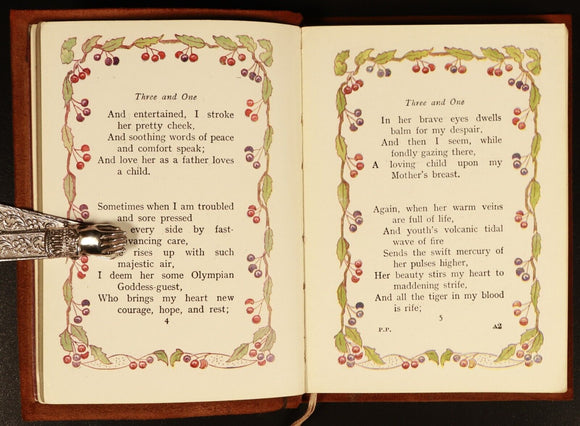 Three and One
And entertained, I stroke
her pretty cheek,
And soothing words of peace
and comfort speak;
And love her as a father loves
a child.
Sometimes when I am troubled
and sore pressed
every side by fast-
vancing care,
rises up with such
majestic air,
I deem her some Olympian
Goddess-guest,
Who brings my heart new
courage, hope, and rest;
4
Three and One
In her brave eyes dwells
balm for my despair,
And then I seem, while
fondly gazing there,
A loving child upon my
Mother's breast.
Again, when her warm veins
are full of life,
And youth's volcanic tidal
wave of fire
Sends the swift mercury of
her pulses higher,
Her beauty stirs my heart to
maddening strife,
And all the tiger in my blood
is rife;
5
P.P. A2